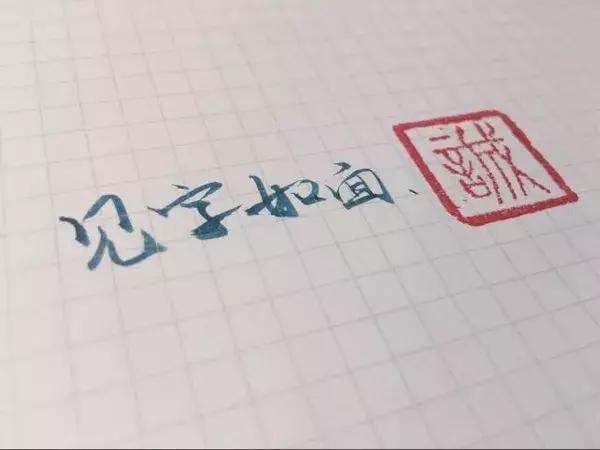 见字如面、
誠